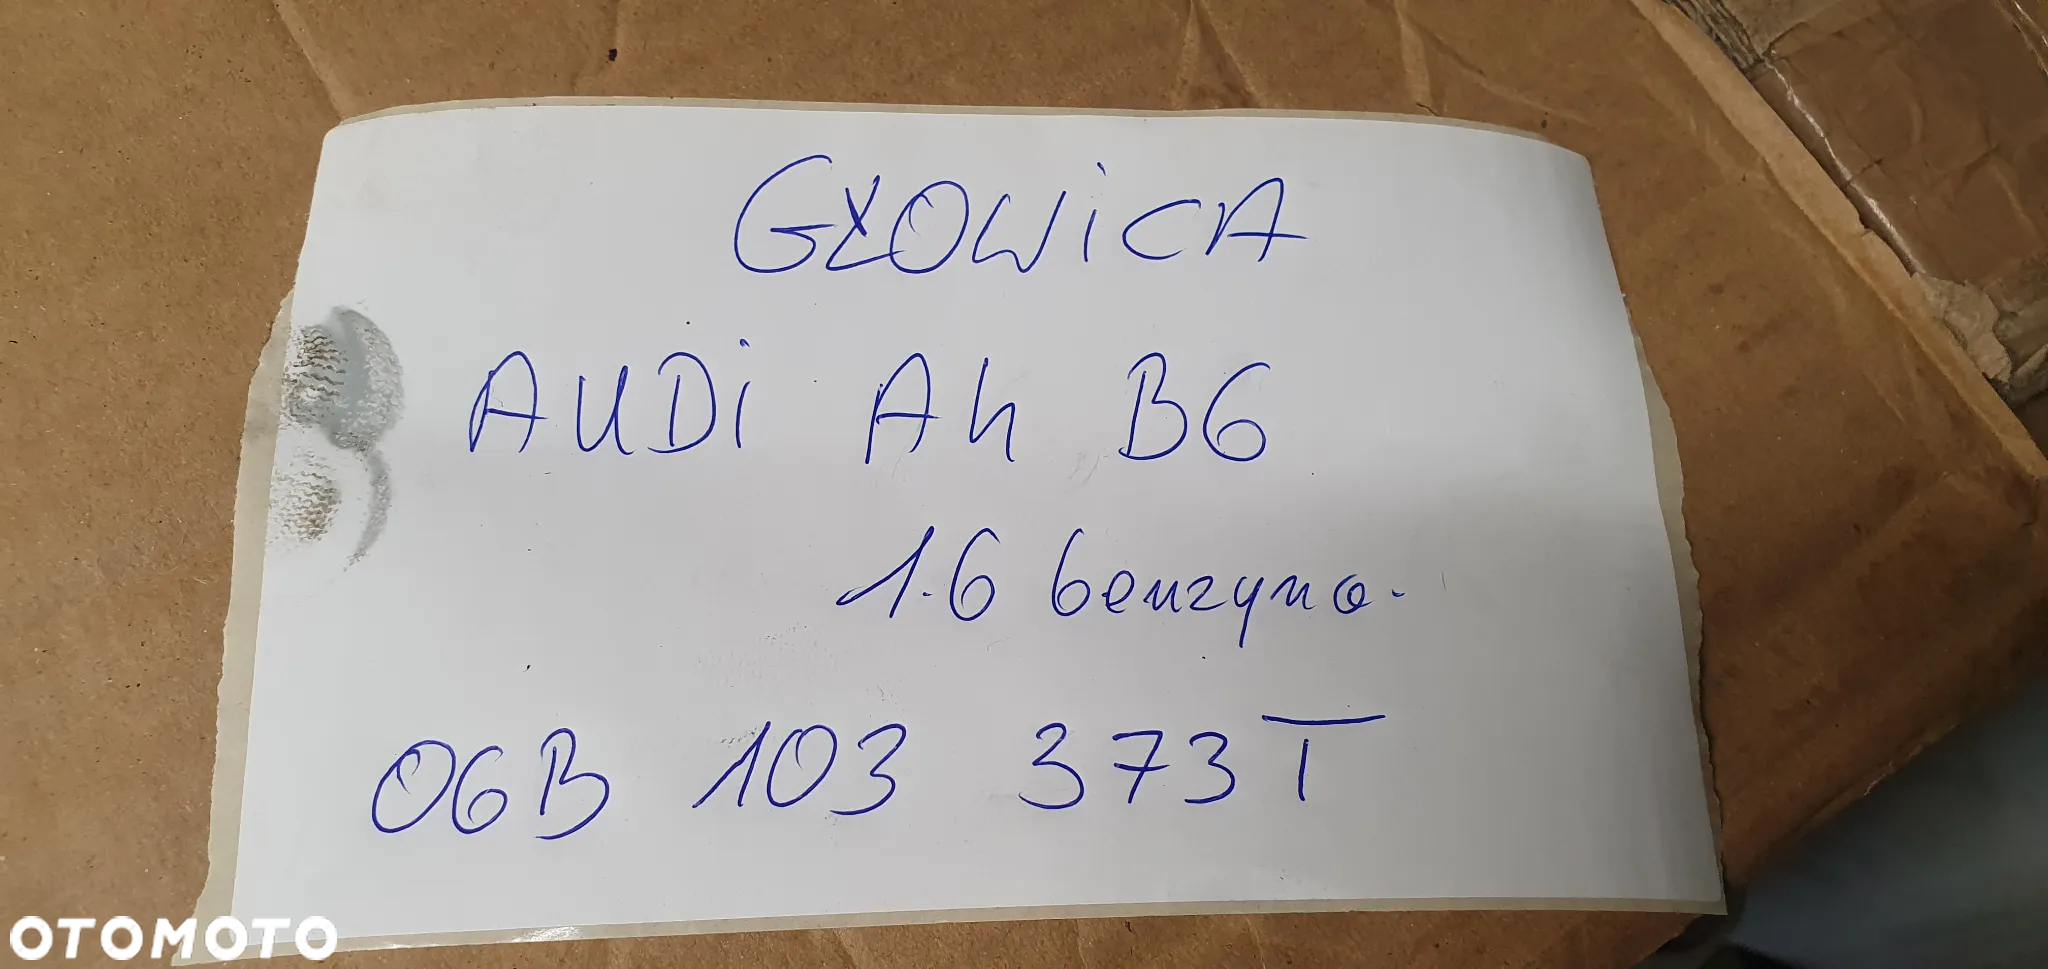 GŁOWiCA
AUDi A4 B6
1.6 benzyna.
06B 103 373T
OTOMOTO